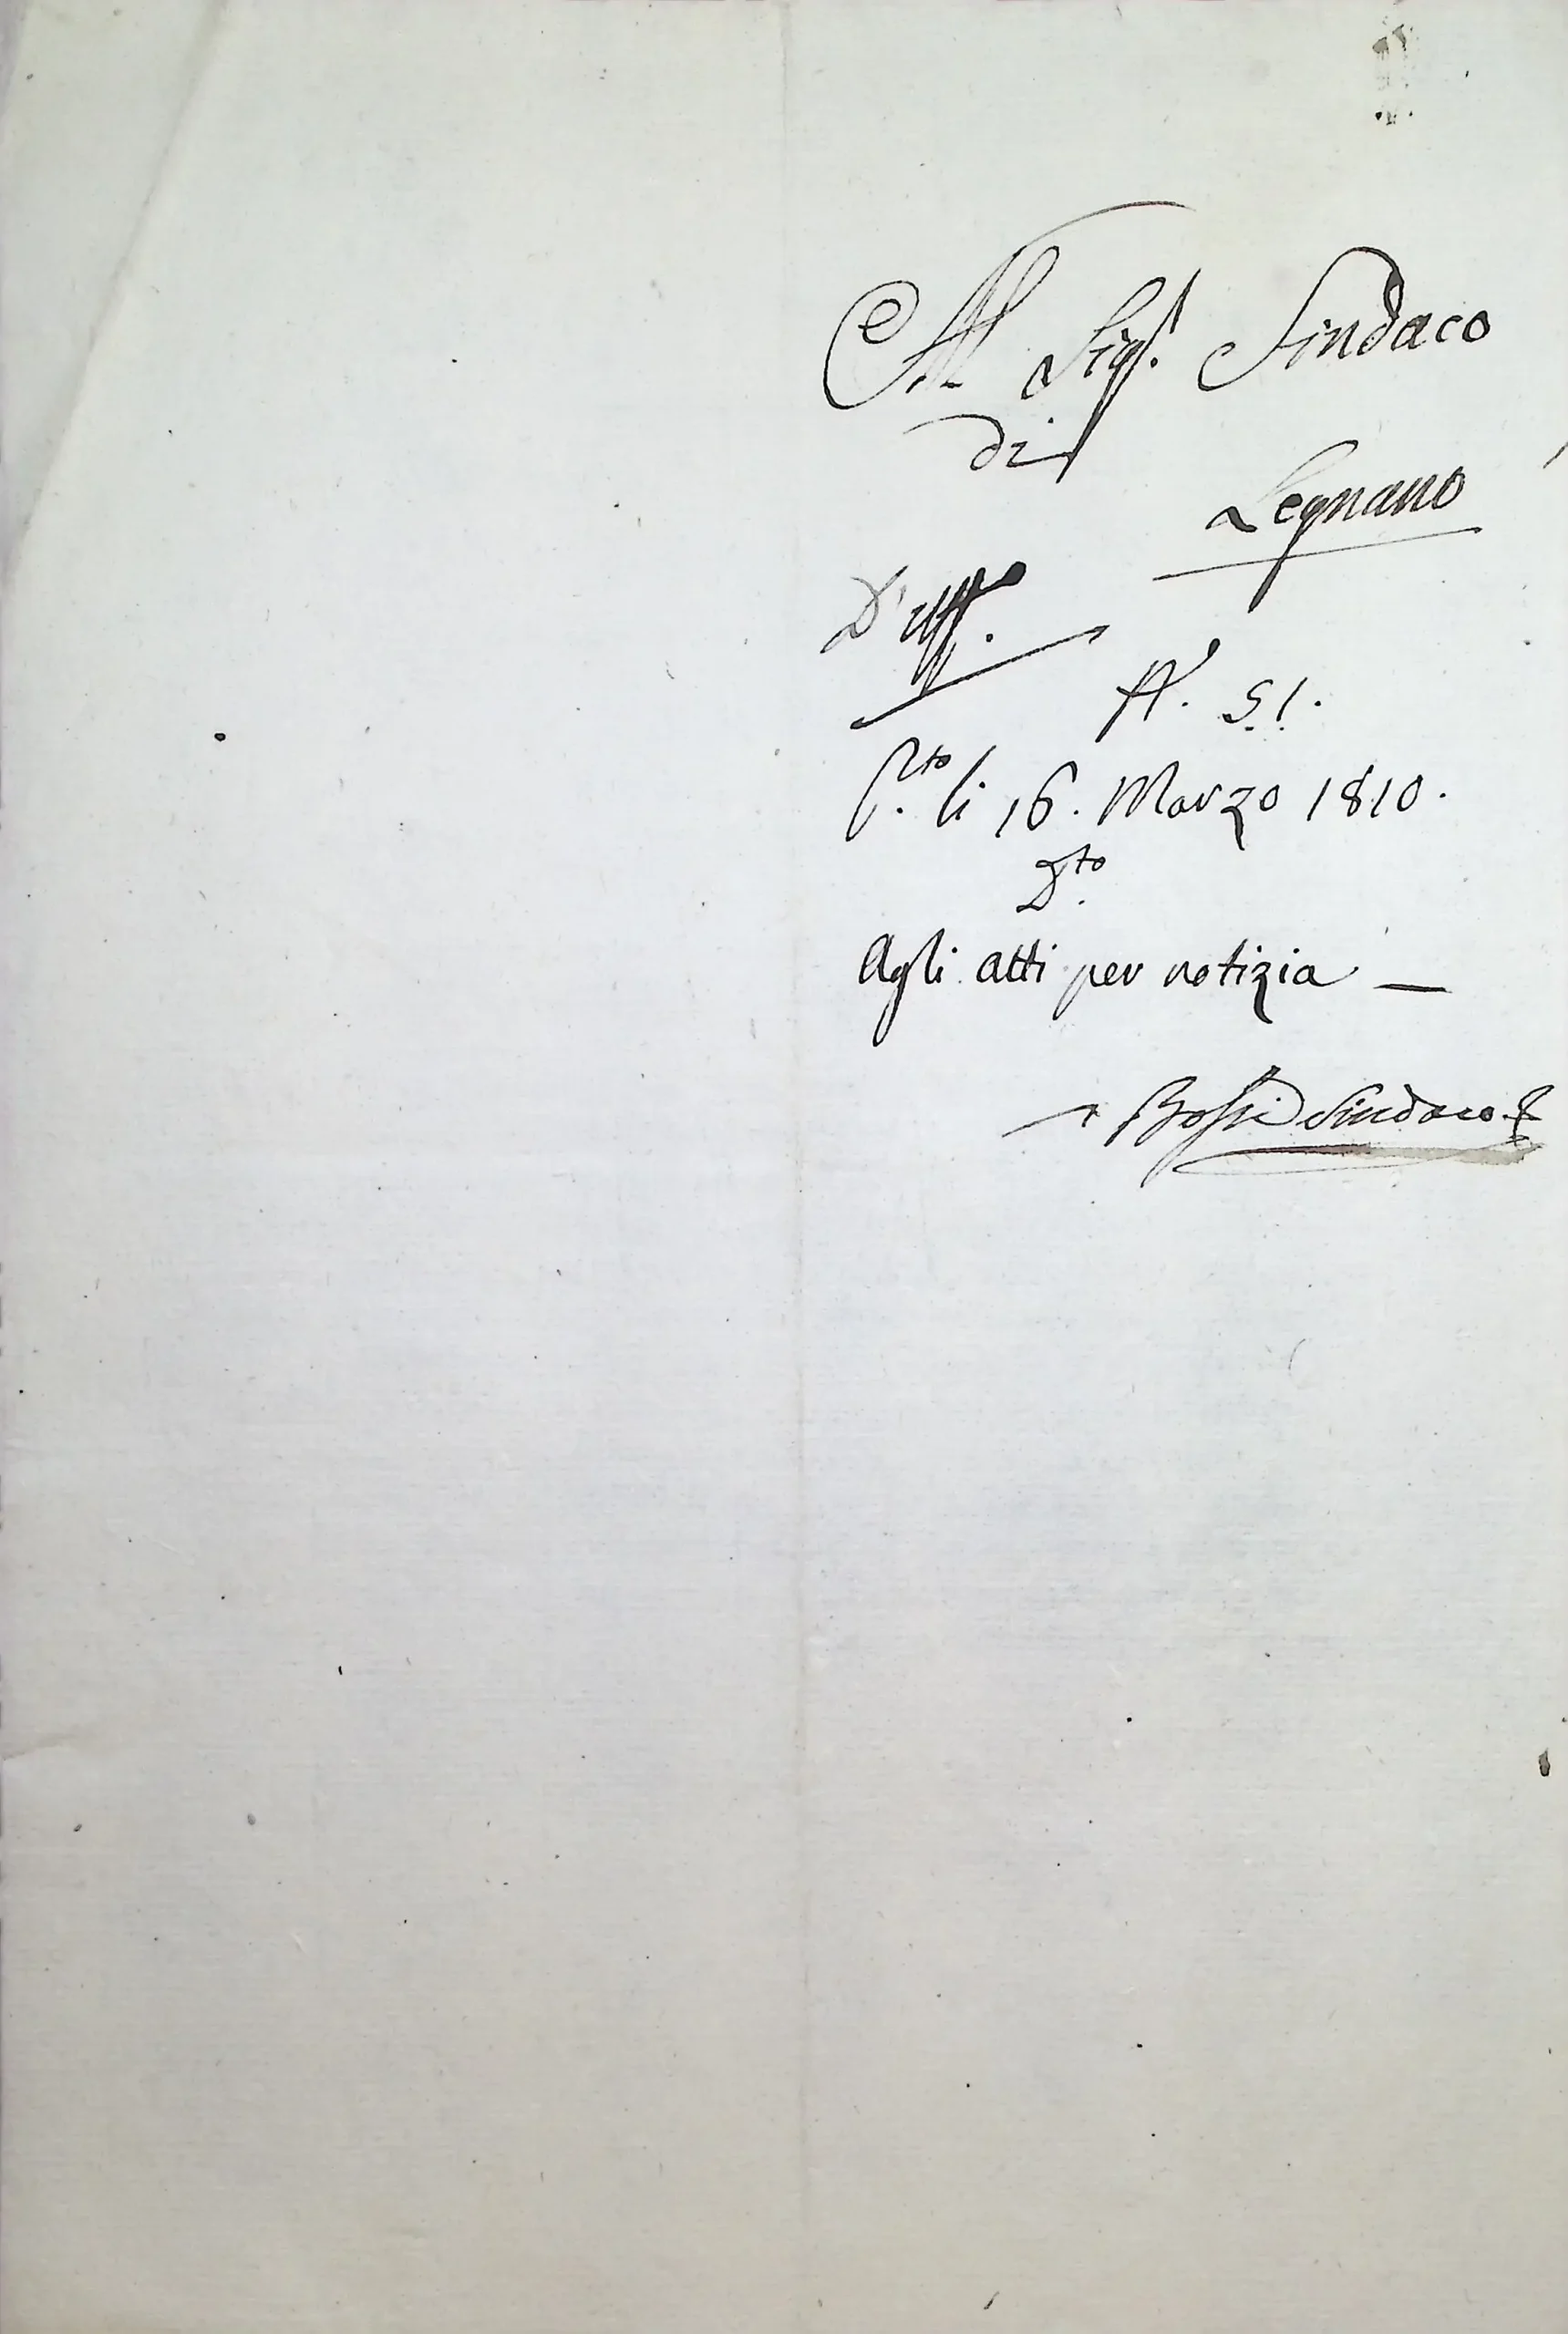 Al Sigr. Sindaco
di
Legnano
D'uffo.
No. 51.
Pto. li 16. Marzo 1810.
Dto.
Agli atti per notizia —
Bossi Sindaco